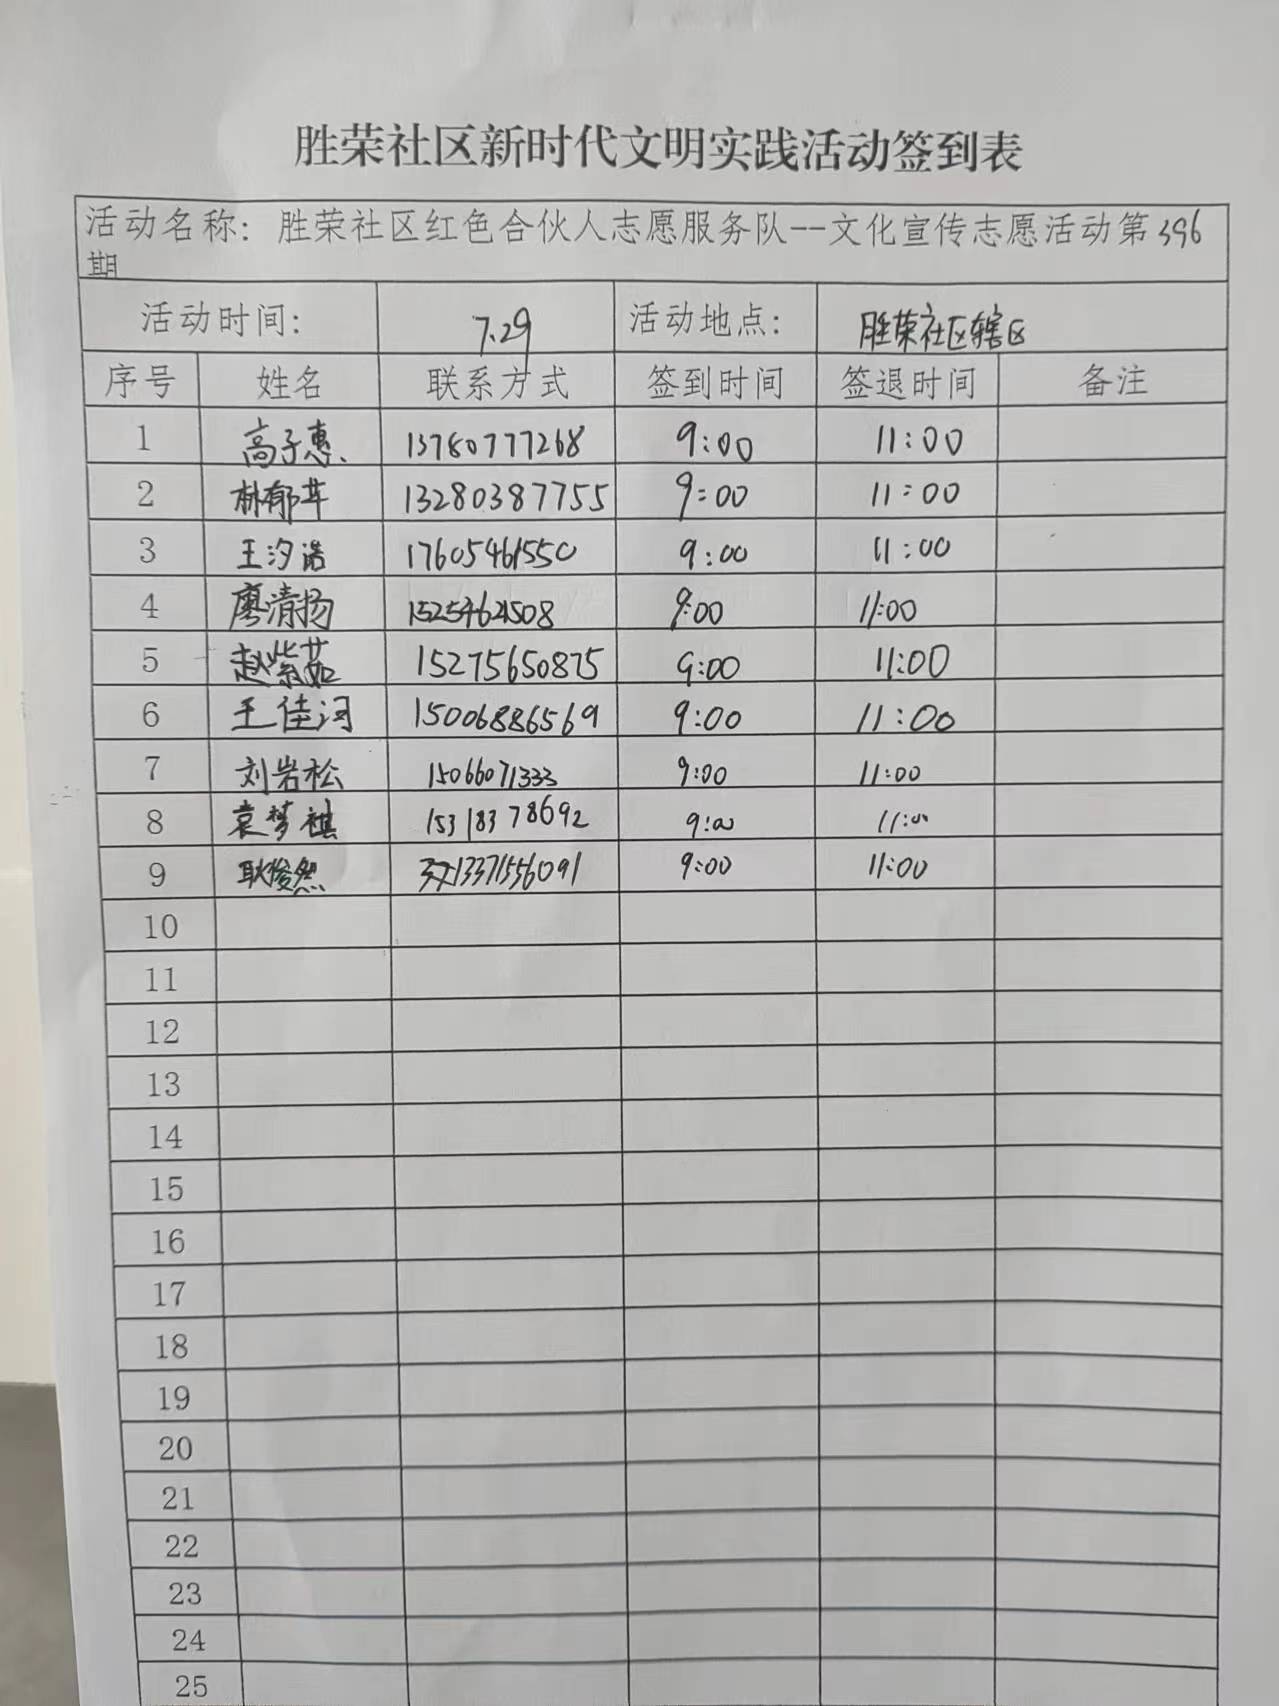 胜荣社区新时代文明实践活动签到表
活动名称：胜荣社区红色合伙人志愿服务队--文化宣传志愿活动第396
期
活动时间： 7.29 活动地点： 胜荣社区辖区
序号 姓名 联系方式 签到时间 签退时间 备注
1 高子惠 13780777268 9:00 11:00
2 13280387755 9:00 11:00
3 王汐浩 17605461550 9:00 11:00
4 廖清扬 9:00 11:00
5 赵紫茹 15275650875 9:00 11:00
6 王佳 15006886569 9:00 11:00
7 刘岩松 15066071333 9:00 11:00
8 袁梦祺 15318378692 9:00 11:00
9 耿俊然 13371556091 9:00 11:00
10
11
12
13
14
15
16
17
18
19
20
21
22
23
24
25